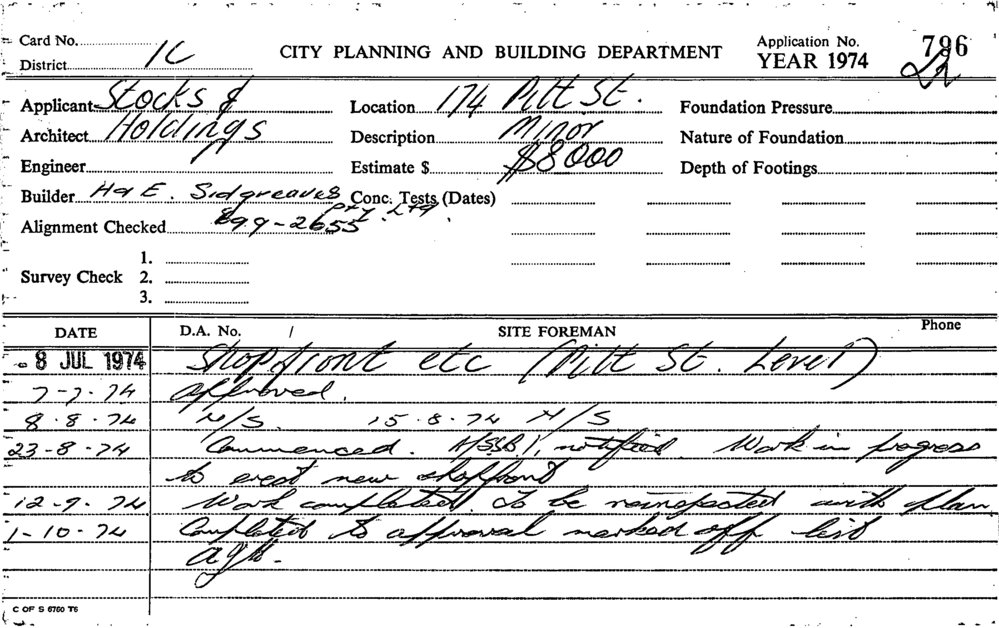 Card No.
District 1C
CITY PLANNING AND BUILDING DEPARTMENT
Application No. 796
YEAR 1974
Applicant Stocks &
Architect Holdings
Engineer
Builder H & E. Sidgreaves Pty. Ltd.
Alignment Checked 699-2655
Survey Check 1.
2.
3.
Location 174 Pitt St.
Description Minor
Estimate $ $8000
Conc. Tests (Dates)
Foundation Pressure
Nature of Foundation
Depth of Footings
DATE D.A. No. / SITE FOREMAN Phone
8 JUL 1974 Shopfront etc (Pitt St. Level)
7-7-74 approved.
8-8-74 N/S. 15-8-74 N/S
23-8-74 Commenced. notified. Work in progress
to erect new shopfront
12-9-74 Work completed. To be reinspected with plan.
1-10-74 Completed to approval marked off list
C OF S 6760 T6